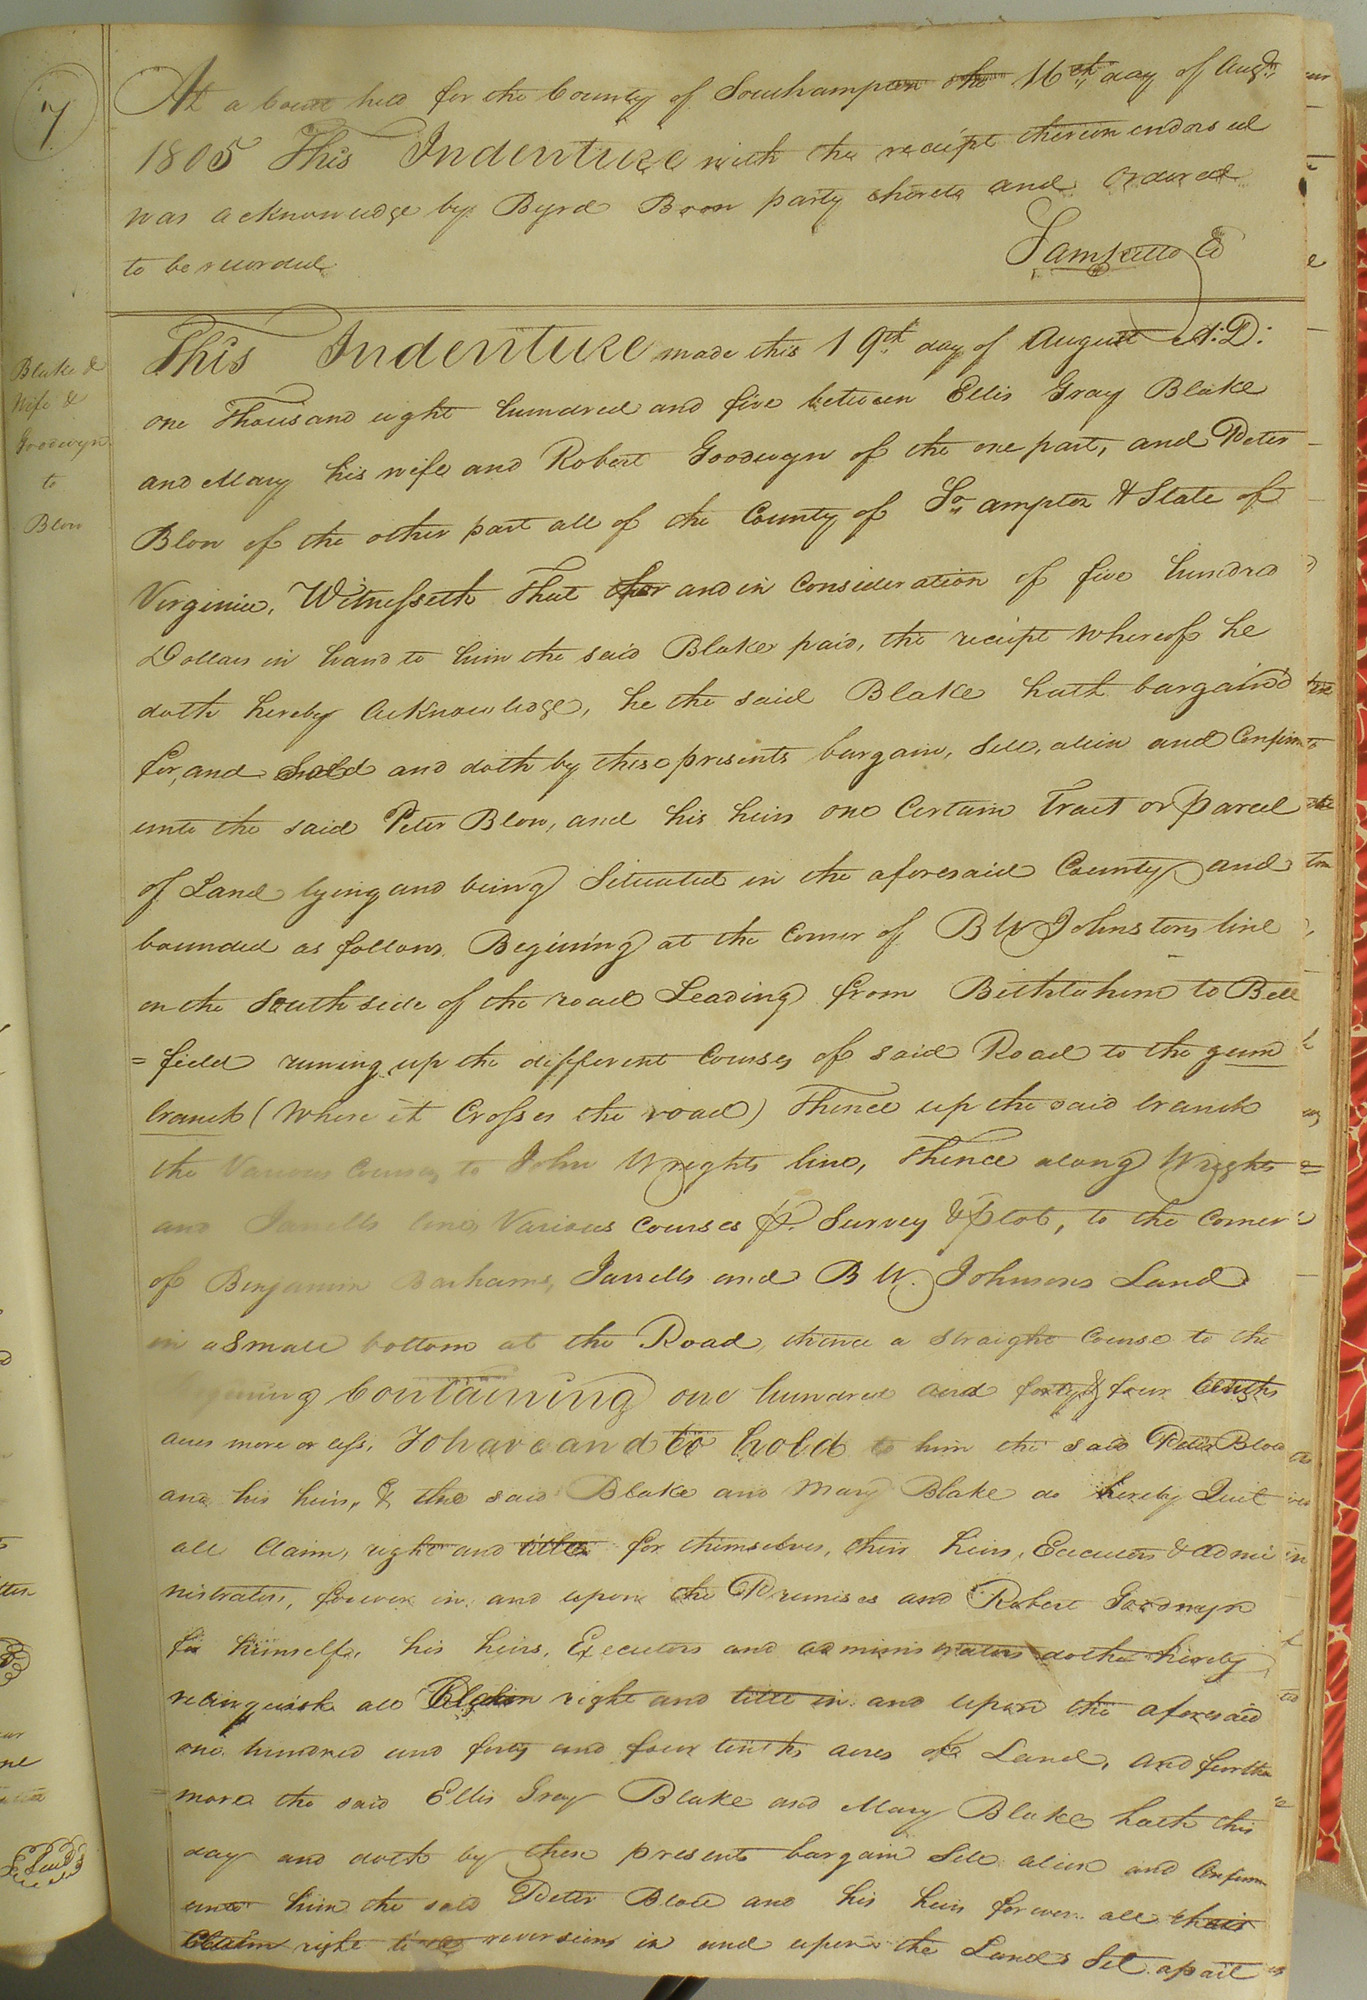 7
At a Court held for the County of Southampton the 16th day of Augt.
1805 This Indenture with the receipt thereon endorsed
was acknowledge by Byrd Boon party thereto and Ordered
to be recorded
Saml Kello C
Blake &
Wife &
Goodwyn
to
Blow
This Indenture made this 19th day of August A:D:
one Thousand eight hundred and five between Ellis Gray Blake
and Mary his wife and Robert Goodwyn of the one part, and Peter
Blow of the other part all of the County of So.ampton & State of
Virginia, Witnesseth That for and in Consideration of five hundred
Dollars in hand to him the said Blake paid, the reciept whereof he
doth hereby acknowledge, he the said Blake hath bargain'd
for, and Sold and doth by these presents bargain, Sell, alien and Confirm
unto the said Peter Blow, and his heirs one Certain Tract or parcel
of Land lying and being Situated in the aforesaid County and
bounded as follows. Begining at the Corner of B W Johnstons line
on the South side of the road Leading from Bethlehem to Bell
=field runing up the different Courses of said Road to the gum
branch (Where it Crosses the road) Thence up the said branch
the Various Courses to John Wrights line, Thence along Wrights
and Jarrells lines Various Courses pr. Survey & plot, to the Corner
of Benjamin Barhams, Jarrells and B W. Johnsons Land
in a Small bottom at the Road, thence a straight Course to the
begining Containing one hundred and forty & four tenths
acres more or less, To have and to hold to him the said Peter Blow
and his heirs, & the said Blake and Mary Blake do hereby Quit
all Claim, right and title for themselves, their heirs, Executors & admi
nistrators, forever in and upon the Premises and Robert Goodwyn
for himself, his heirs, Executors and administrators doth hereby
relinquish all Claim right and title in and upon the aforesaid
one hundred and forty and four tenths acres of Land, and further
more the said Ellis Gray Blake and Mary Blake hath this
day and doth by these presents bargain Sell alien and Confirm
unto him the said Peter Blow and his heirs forever all their
Claim right title reversions in and upon the Lands Set apart